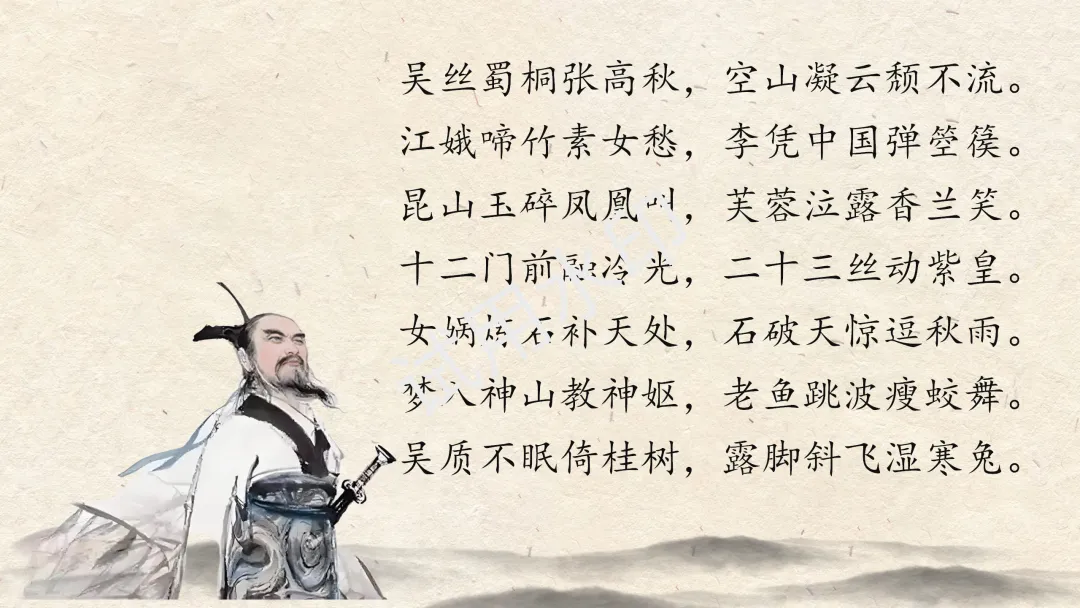 吴丝蜀桐张高秋，空山凝云颓不流。
江娥啼竹素女愁，李凭中国弹箜篌。
昆山玉碎凤凰叫，芙蓉泣露香兰笑。
十二门前融冷光，二十三丝动紫皇。
女娲炼石补天处，石破天惊逗秋雨。
梦入神山教神妪，老鱼跳波瘦蛟舞。
吴质不眠倚桂树，露脚斜飞湿寒兔。
试用水印